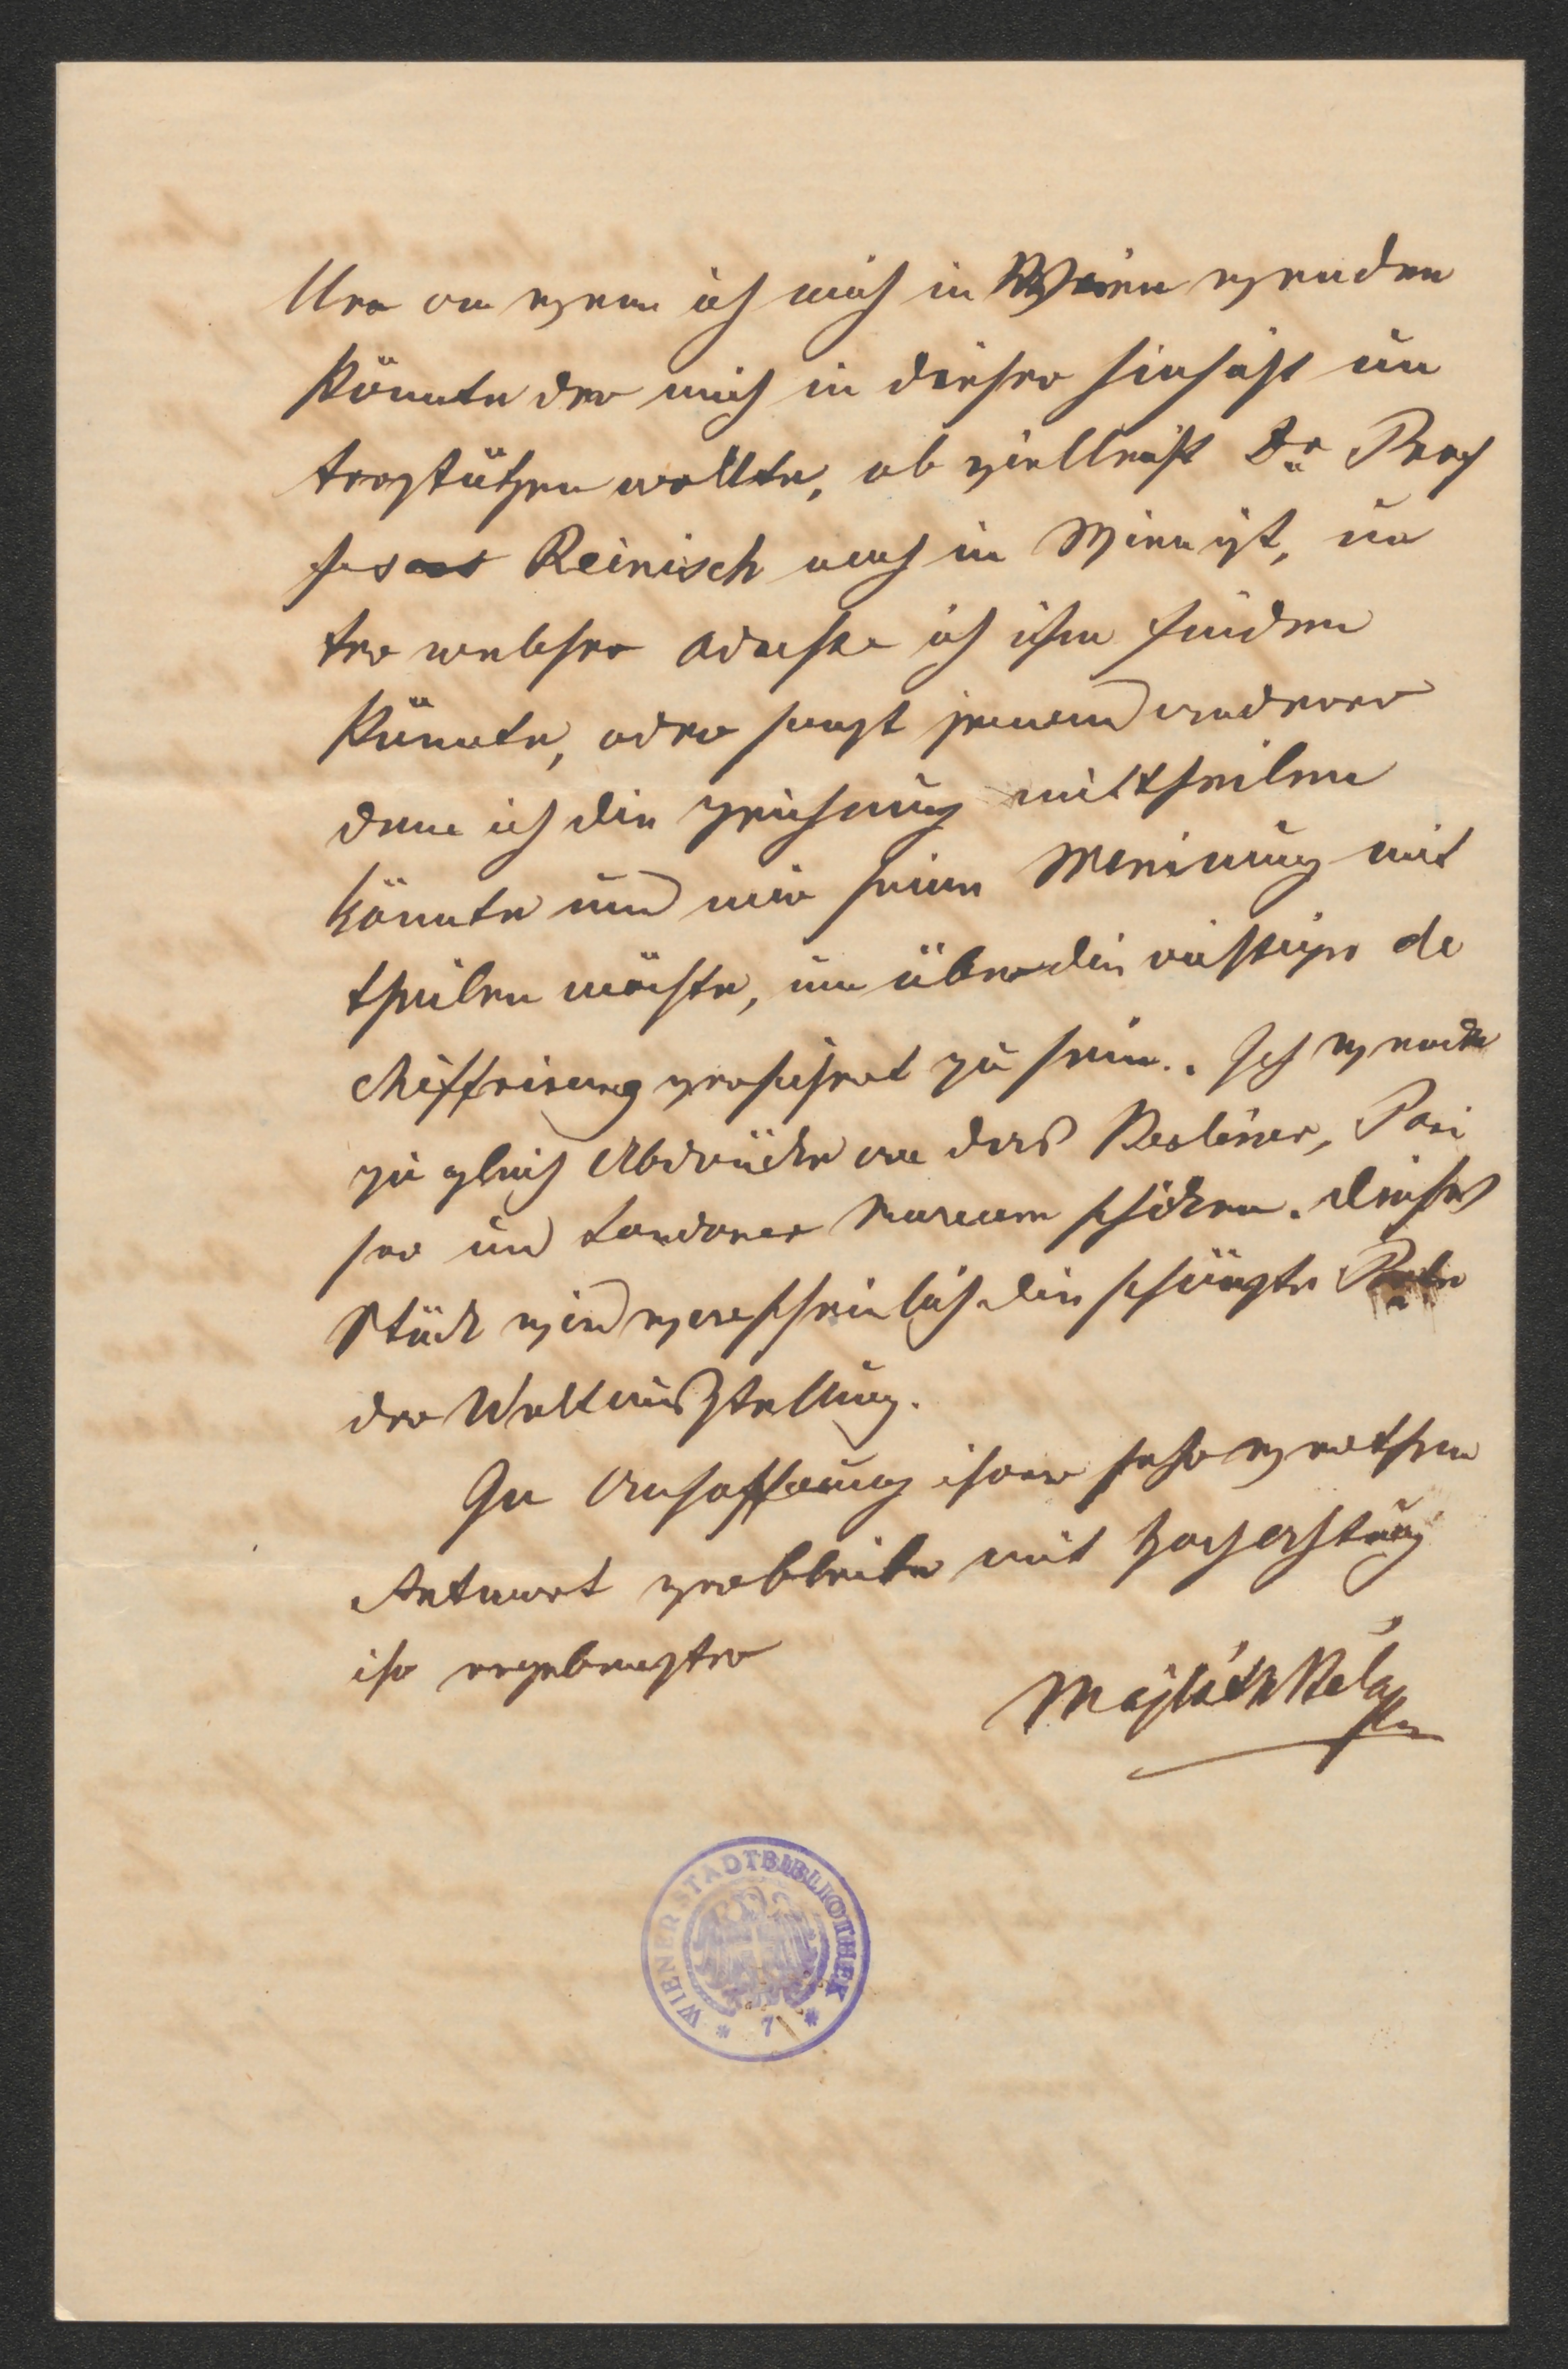 Und an wem ich mich in Wien wenden
könnte der mich in dieser hinsicht un
terstützen wollte, ob vielleicht Dr Prof
fesor Reinisch noch in Wien ist, un
ter welcher adresse ich ihm finden
könnte, oder sonst jemand anderer
dem ich die zeichnung mittheilen
könnte und mir seine Meinung mit
theilen möchte, um über die richtige de
chiffrirung versichert zu sein. Ich werde
zu gleich Abdrücke an das Berliner, Pari
ser und Londoner Museum schicken. dieses
Stück wird warscheinlich die schönste Perle
der Weltausstellung.
In Anhoffnung ihrer sehr werthen
Antwort verbleibe mit Hochachtung
ihr ergebenster
Majláth Béla
WIENER STADTBIBLIOTHEK
* 7 *